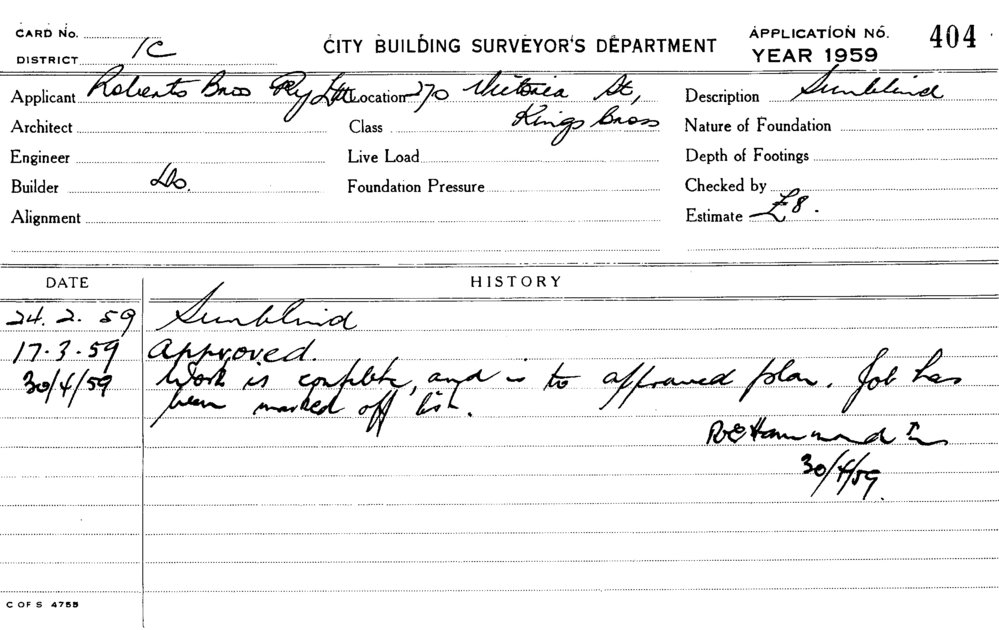 CARD No.
DISTRICT 1C
CITY BUILDING SURVEYOR'S DEPARTMENT
APPLICATION No. 404
YEAR 1959
Applicant Roberts Bros Pty Ltd Location 270 Victoria St, Description Sunblind
Architect Class Kings Cross Nature of Foundation
Engineer Live Load Depth of Footings
Builder Do. Foundation Pressure Checked by
Alignment Estimate £8.
DATE HISTORY
24. 2. 59 Sunblind
17.3.59 Approved.
30/4/59 Work is complete, and is to approved plan. Job has
been marked off list.
30/4/59.
C OF S 4755